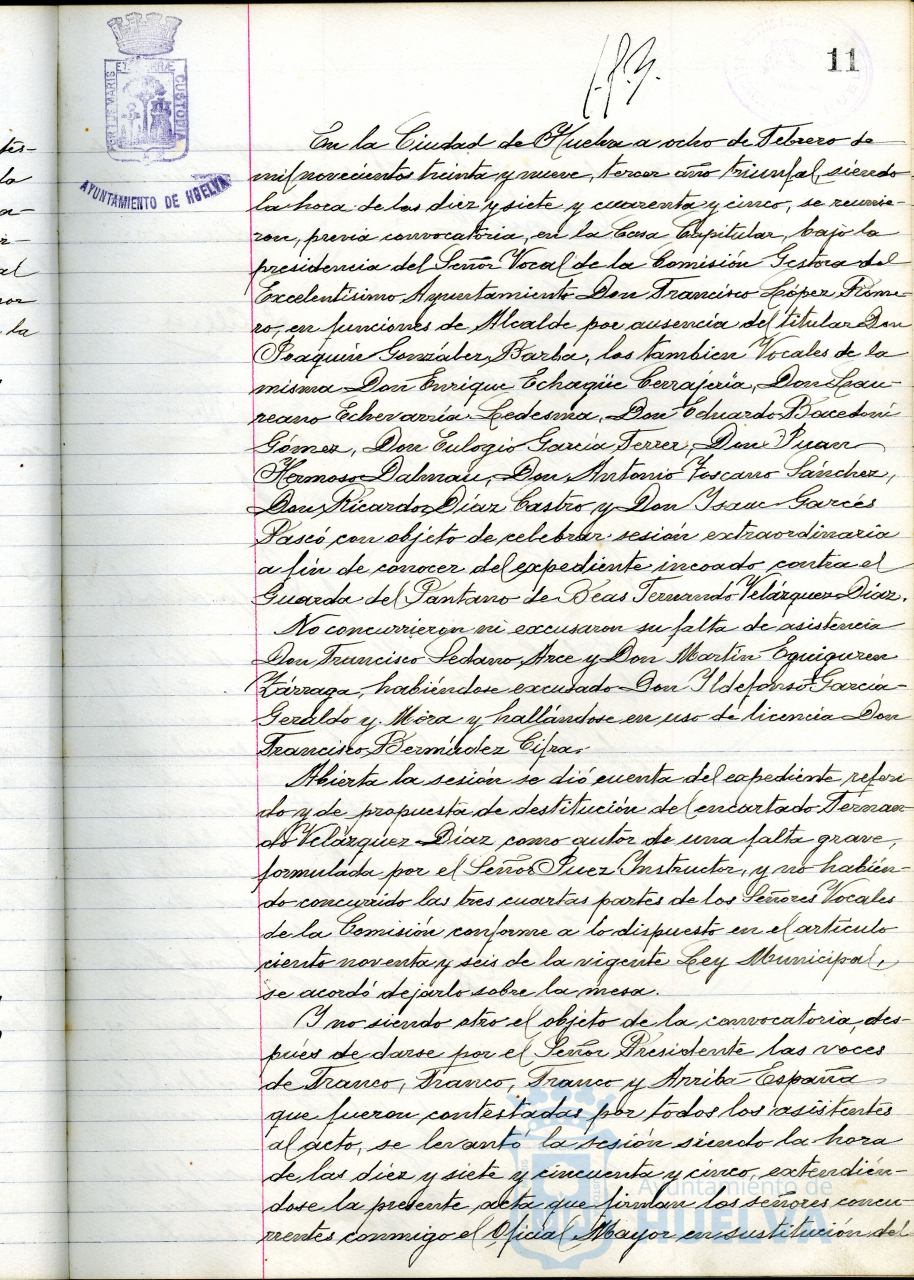 11
PORTUS MARIS ET TERRÆ CUSTODIA
AYUNTAMIENTO DE HUELVA
En la Ciudad de Huelva a ocho de Febrero de
mil novecientos treinta y nueve, tercer año triunfal, siendo
la hora de las diez y siete y cuarenta y cinco, se reunie-
ron, previa convocatoria, en la Casa Capitular, bajo la
presidencia del Señor Vocal de la Comisión Gestora del
Excelentísimo Ayuntamiento Don Francisco López Rome-
ro, en funciones de Alcalde por ausencia del titular Don
Joaquín González Barba, los tambien Vocales de la
misma Don Enrique Echagüe Cerrajería, Don Lau-
reano Echevarría Ledesma, Don Eduardo Bacedoni
Gómez, Don Eulogio García Ferrer, Don Juan
Hermoso Dalmau, Don Antonio Toscano Sánchez,
Don Ricardo Díaz Castro y Don Isaac Garcés
Pascó con objeto de celebrar sesión extraordinaria
a fín de conocer del expediente incoado contra el
Guarda del Pantano de Beas Fernando Velázquez Díaz.
No concurrieron ni excusaron su falta de asistencia
Don Francisco Sedano Arce y Don Martín Eguiguren
Zárraga, habiéndose excusado Don Ildefonso García
Geraldo y Mora y hallándose en uso de licencia Don
Francisco Bermúdez Cifra.
Abierta la sesión se dió cuenta del expediente referi-
do y de propuesta de destitución del encartado Fernan-
do Velázquez Díaz como autor de una falta grave,
formulada por el Señor Juez Instructor, y no habién-
do concurrido las tres cuartas partes de los Señores Vocales
de la Comisión conforme a lo dispuesto en el artículo
ciento noventa y seis de la vigente Ley Municipal,
se acordó dejarlo sobre la mesa.
Y no siendo otro el objeto de la convocatoria, des-
pués de darse por el Señor Presidente las voces
de Franco, Franco, Franco y Arriba España
que fueron contestadas por todos los asistentes
al acto, se levantó la sesión siendo la hora
de las diez y siete y cincuenta y cinco, extendién-
dose la presente acta que firman los señores concu-
rrentes conmigo el Oficial Mayor en sustitución del
Ayuntamiento de
HUELVA